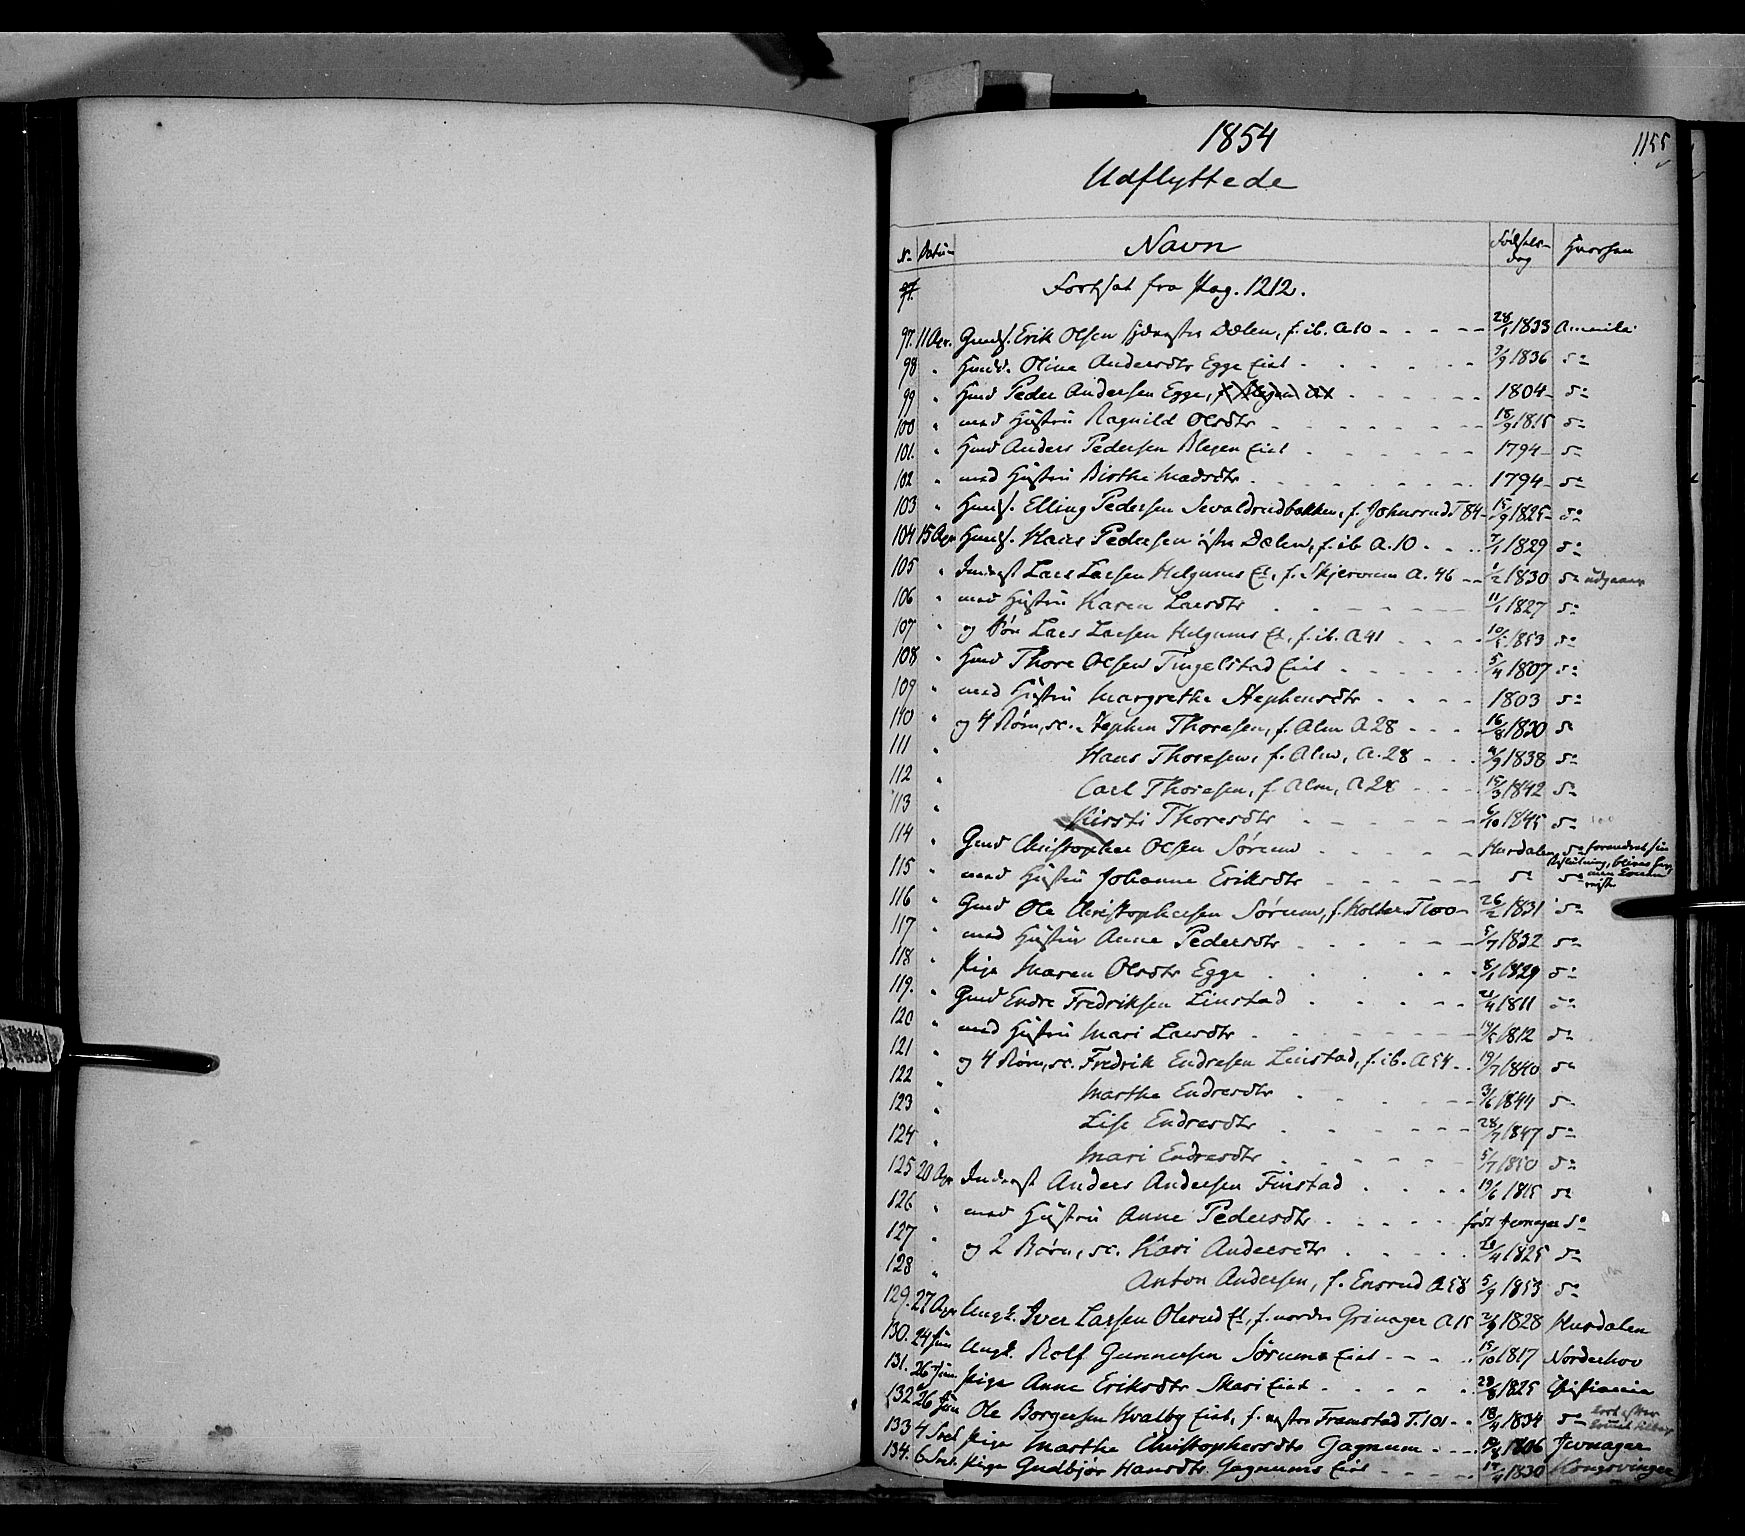 1854
1155
Udflyttede
Nr Datum Navn Fødsels-dag Hvorhen
Fortsat fra Pag. 1212.
97. 11 Apr. Erik Olsen Dælen, f. ib. A10 28/1 1833 Amerika
98 " Oline Andersdtr Egge Eiet 9/9 1836 do
99 " Hmd Peder Andersen Egge, 1804 do
100 " med Hustru Ragnild Olsdtr 18/9 1815 do
101. " Hmd Anders Pedersen Blegen Eiet 1794 do
102 " med Hustru Birthe Madsdtr 1794 do
103 " Elling Pedersen Sevaldrudbakken, f. Johnsrud T84 15/9 1825 do
104 15 Apr Hans Pedersen østre Dælen, f. ib A.10 7/1 1829 do
105 " Inderst Lars Larsen Helgums Et, f. Skjervum A. 46 1/2 1830 do
106 " med Hustru Karen Larsdtr 11/1 1827 do
107 " og Søn Lars Larsen Helgums Et, f. ib. A41 1853 do
108 " Hmd Thore Olsen Tingelstad Eiet 5/4 1807 do
109 " med Hustru Margrethe Stephensdtr 1803 do
110 " og 4 Børn, sc. Stephen Thoresen, f. Alm A28 16/8 1830 do
111 " Hans Thoresen, f. Alm, A.28 1838 do
112 " Carl Thoresen, f. Alm, A28 15/3 1842 do
113 " Kirsti Thoresdtr 6/10 1845 do
114 " Gmd Christopher Olsen Sørum Hurdalen do forandret sin Beslutning,
115 " med Hustru Johanne Eriksdtr do do
116 " Gmd Ole Christophersen Sørum, f. Kolker T100 26/2 1831 do
117 " med Hustru Anne Pedersdtr 5/7 1832 do
118 " Pige Maren Olsdtr Egge 8/1 1829 do
119. " Gmd Endre Fredriksen Linstad 1811 do
120 " med Hustru Mari Larsdtr 1812 do
121 " og 4 Børn, sc. Fredrik Endresen Linstad, f. ib. A54 19/7 1840 do
122 " Marthe Endresdtr 3/6 1844 do
123 " Lise Endresdtr 1847 do
124 " Mari Endresdtr 5/7 1850 do
125 20 Apr Inderst Anders Andersen Finstad 19/6 1815 do
126 " med Hustru Anne Pedersdtr født Jevnager do
127 " og 2 Børn, sc. Kari Andersdtr 1825 do
128 " Anton Andersen, f. Ensrud A58 5/9 1853 do
129. 27 Apr Ungk. Iver Larsen Olerud Et, f. nordre Grinager A15 2/9 1828 Hurdalen
130. 24 Jun Ungk. Rolf Gunnersen Sørums Eiet 15/10 1817 Norderhov
131. 26 Jun Pige Anne Eriksdtr Skari Eiet 28/8 1825 Christiania
132 26 Jun Ole Borgersen Hvalby Eiet, f. vestre Framstad T.101 18/4 1834 do
133 4 Marthe Christophersdtr Gagnum 1806 Jevnager
134. 6 Pige Gudbjør Hansdtr. Gagnums Eiet 1830 Kongsvinger